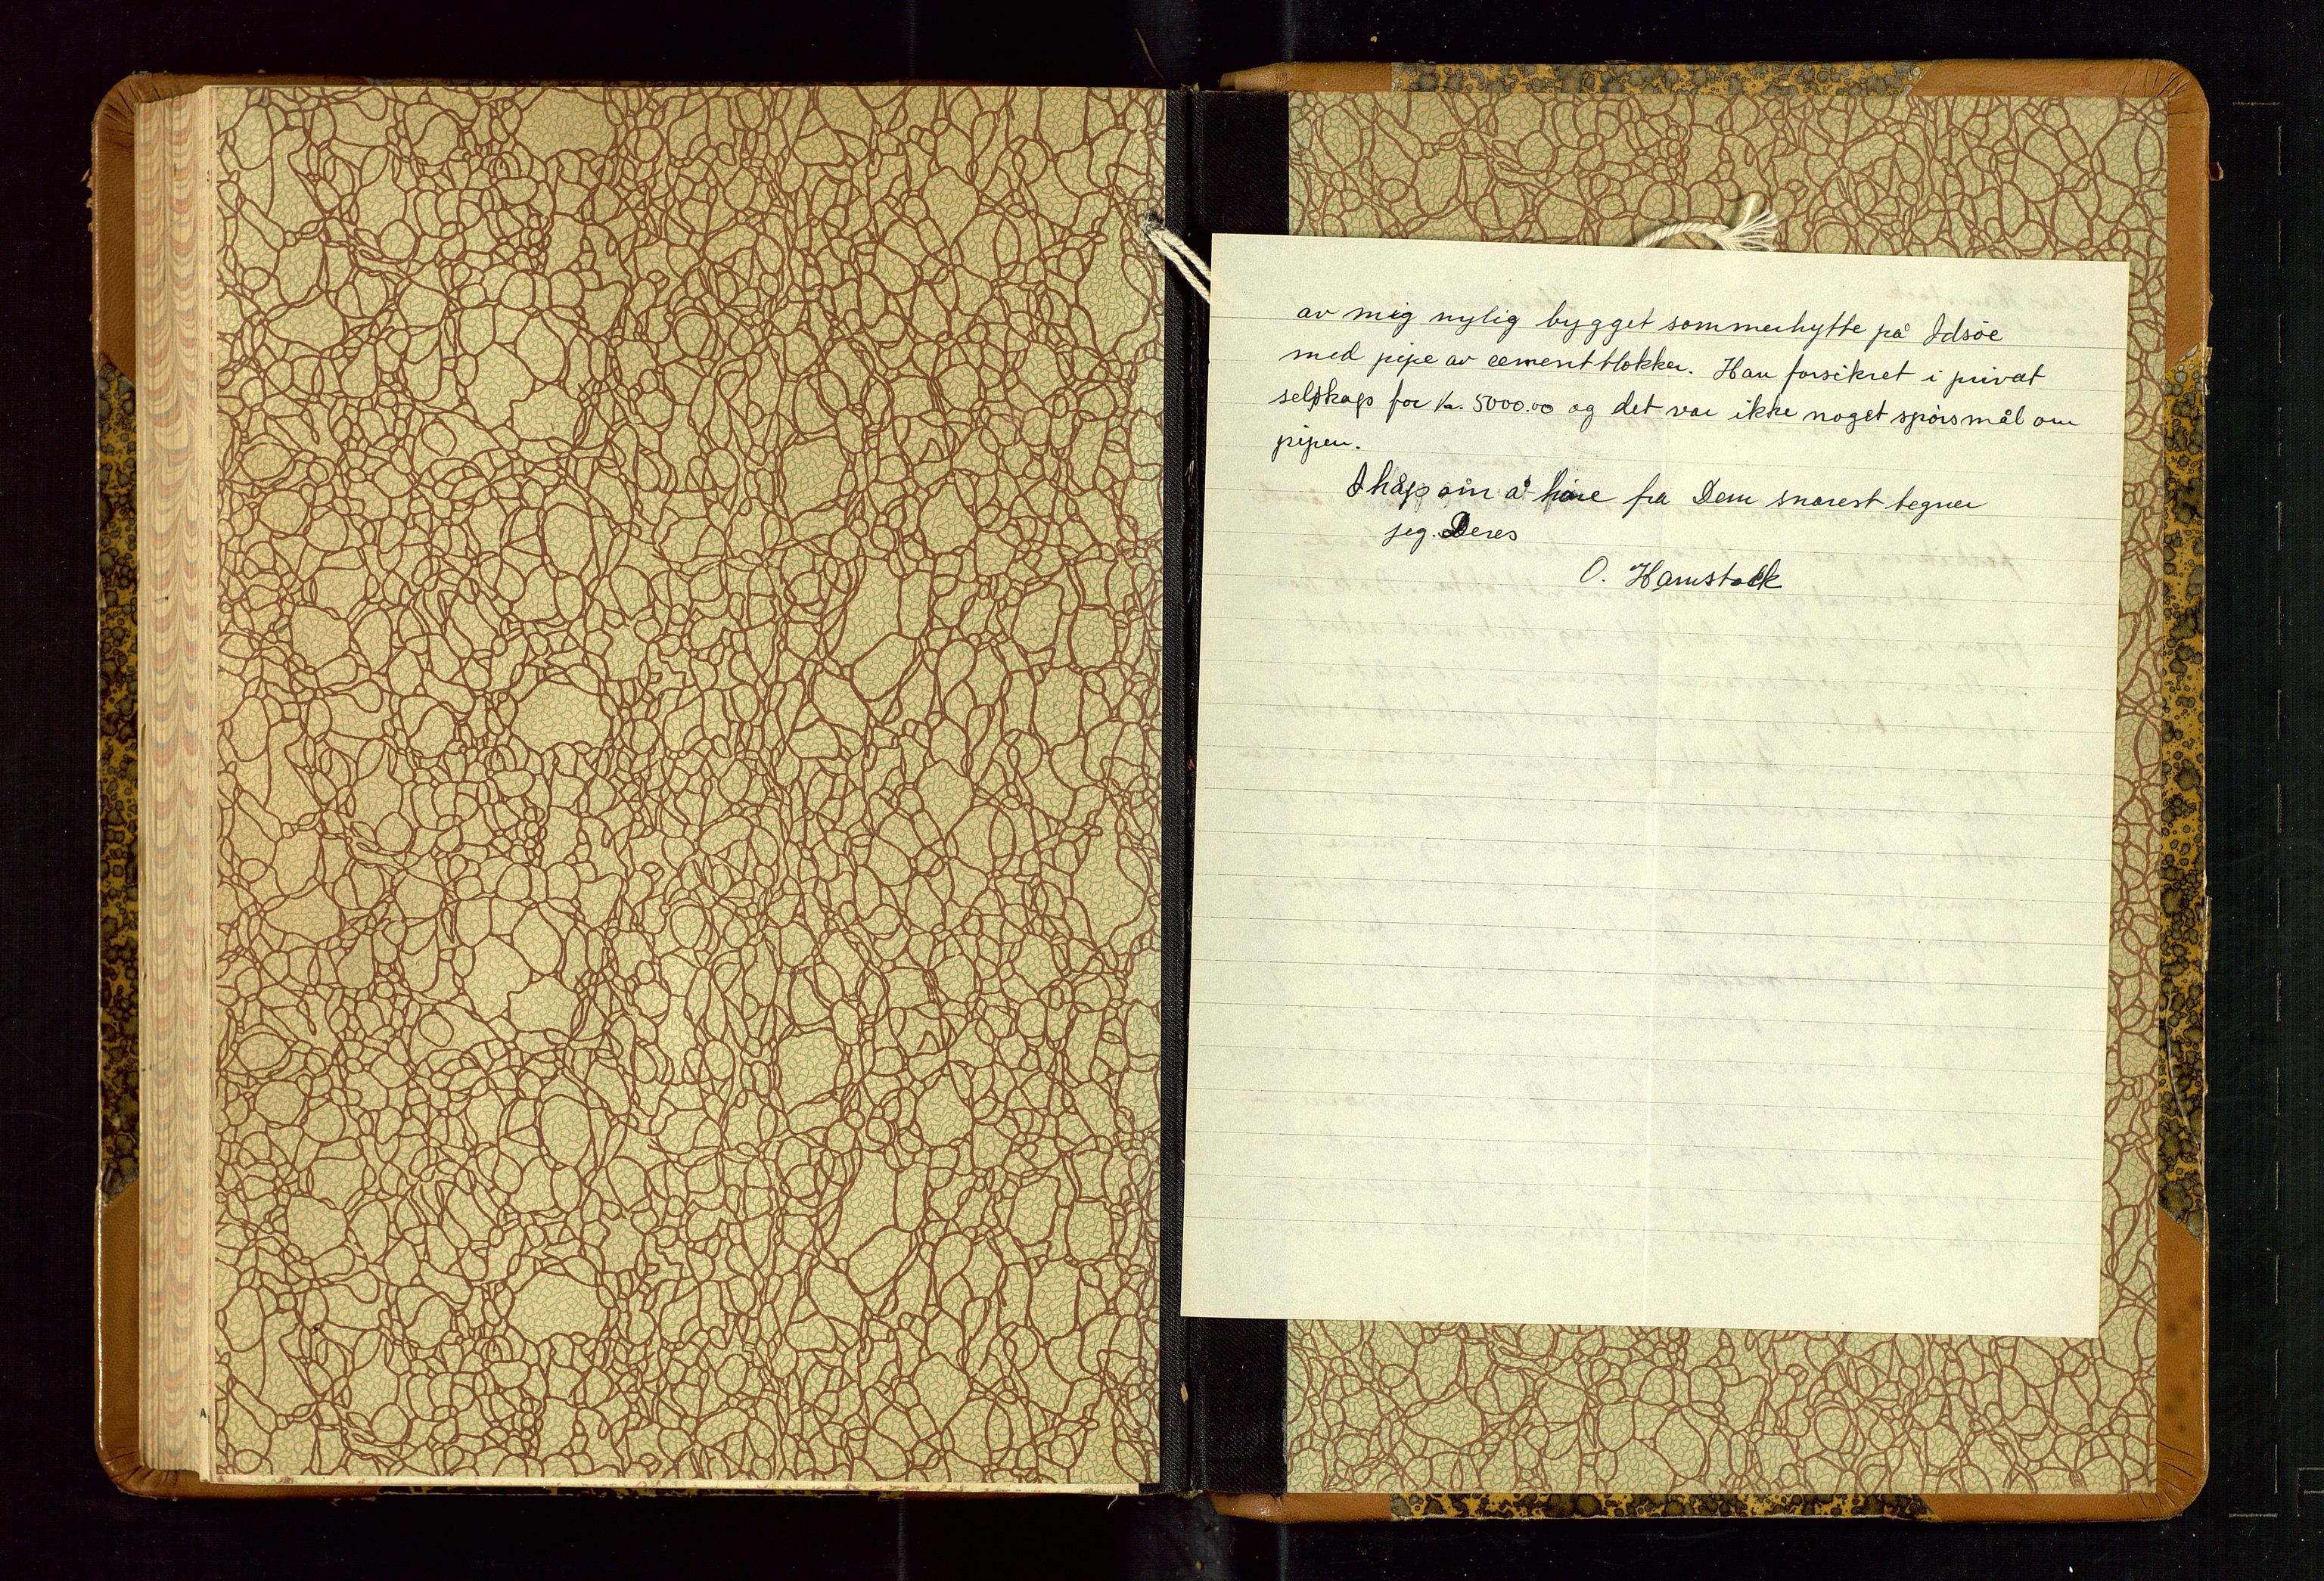 av mig nylig bygget sommerhytte på Idsöe
med pipe av cementblokker. Han forsikret i privat
selskap for Kr. 5000.00 og det var ikke noget spörsmål om
pipen.
I håp om å höre fra Dem snarest tegner
jeg. Deres
O. Hamstock
A.